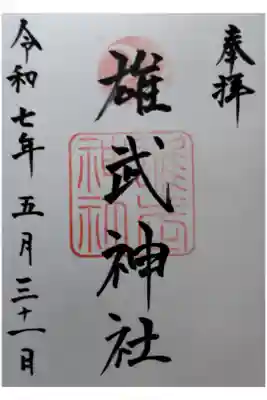 奉拝
雄武神社
令和七年五月三十一日